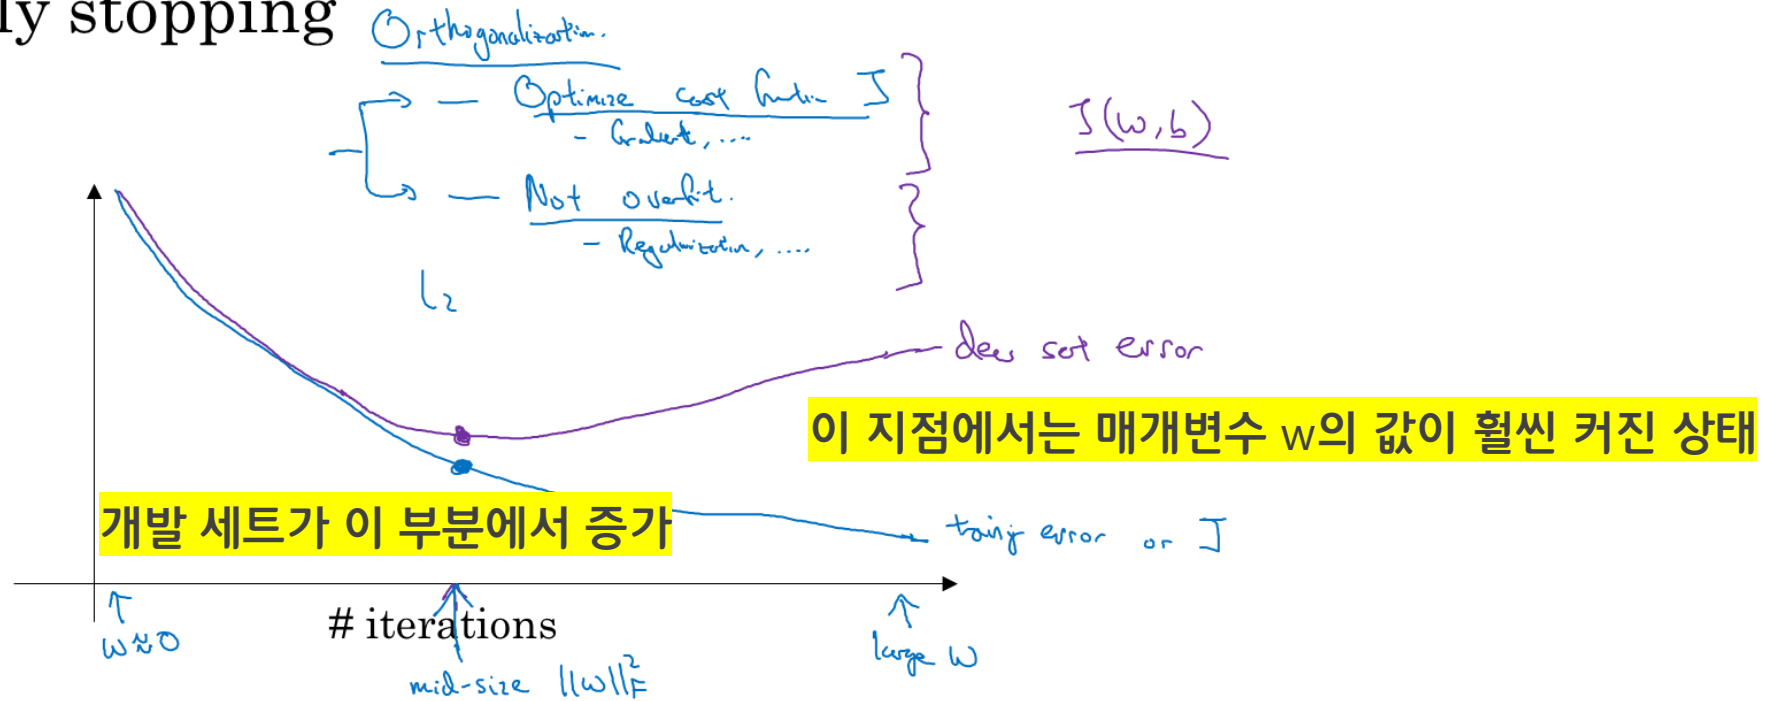 ly stopping
Orthogonalization.
— Optimize cost function J
- Gradient, ....
J(w,b)
— Not overfit.
- Regularization, ....
L2
dev set error
이 지점에서는 매개변수 w의 값이 훨씬 커진 상태
개발 세트가 이 부분에서 증가
training error or J
w≈0
# iterations
large w
mid-size ||w||²F